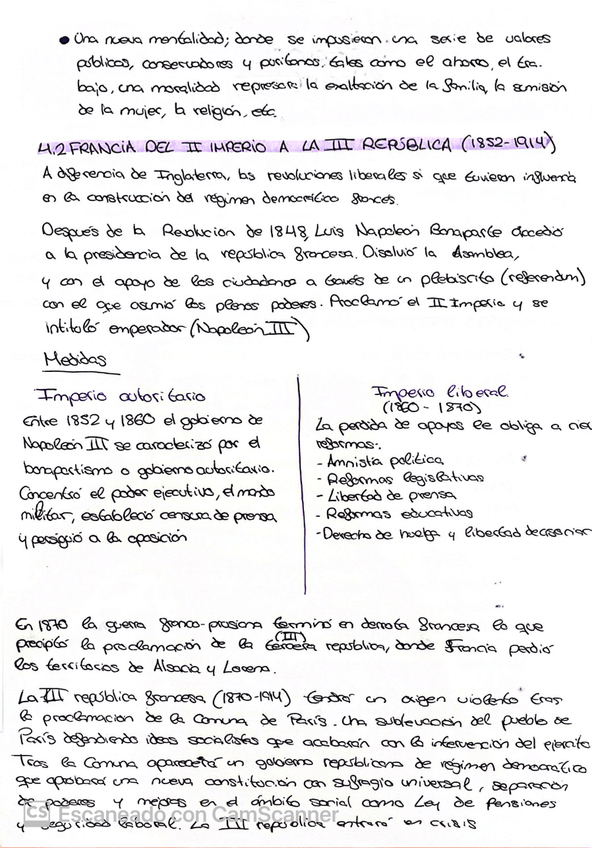 • Una nueva mentalidad; donde se impusieron una serie de valores
públicos, conservadores y puritanos, tales como el ahorro, el tra-
bajo, una moralidad represora: la exaltación de la familia, la sumisión
de la mujer, la religión, etc.
4.2 FRANCIA DEL II IMPERIO A LA III REPÚBLICA (1852-1914)
A diferencia de Inglaterra, las revoluciones liberales si que tuvieron influencia
en la construcción del régimen democrático francés.
Después de la Revolucion de 1848, Luis Napoleón Bonaparte accedió
a la presidencia de la republica francesa. Disolvió la Asamblea,
y con el apoyo de los ciudadanos a través de un plebiscito (referendum)
con el que asumió los plenos poderes. Proclamó el II Imperio y se
intituló emperador (Napoleón III)
Medidas
Imperio autoritario
Entre 1852 y 1860 el gobierno de
Napoleón III se caracterizó por el
bonapartismo o gobierno autoritario.
Concentró el poder ejecutivo, el mando
militar, estableció censura de prensa
y persiguió a la oposición
Imperio liberal
(1860 - 1870)
La perdida de apoyos le obliga a
reformas:
- Amnistia política
- Reformas legislativas
- Libertad de prensa
- Reformas educativas
- Derecho de huelga y libertad de
En 1870 la guerra franco-prusiana terminó en derrota francesa lo que
precipitó la proclamación de la tercera (III) republica, donde Francia perdió
los territorios de Alsacia y Lorena.
La III república francesa (1870-1914) tendrá un origen violento tras
la proclamacion de la Comuna de París. Una sublevación del pueblo de
París defendiendo ideas socialistas que acabaran con la intervención del ejercito
Tras la Comuna aparecerá un gobierno republicano de régimen democratico
que aprobará una nueva constitución con sufragio universal, separación
de poderes y mejoras en el ámbito social como Ley de Pensiones
y seguridad laboral. La III republica entrará en crisis
CS Escaneado con CamScanner